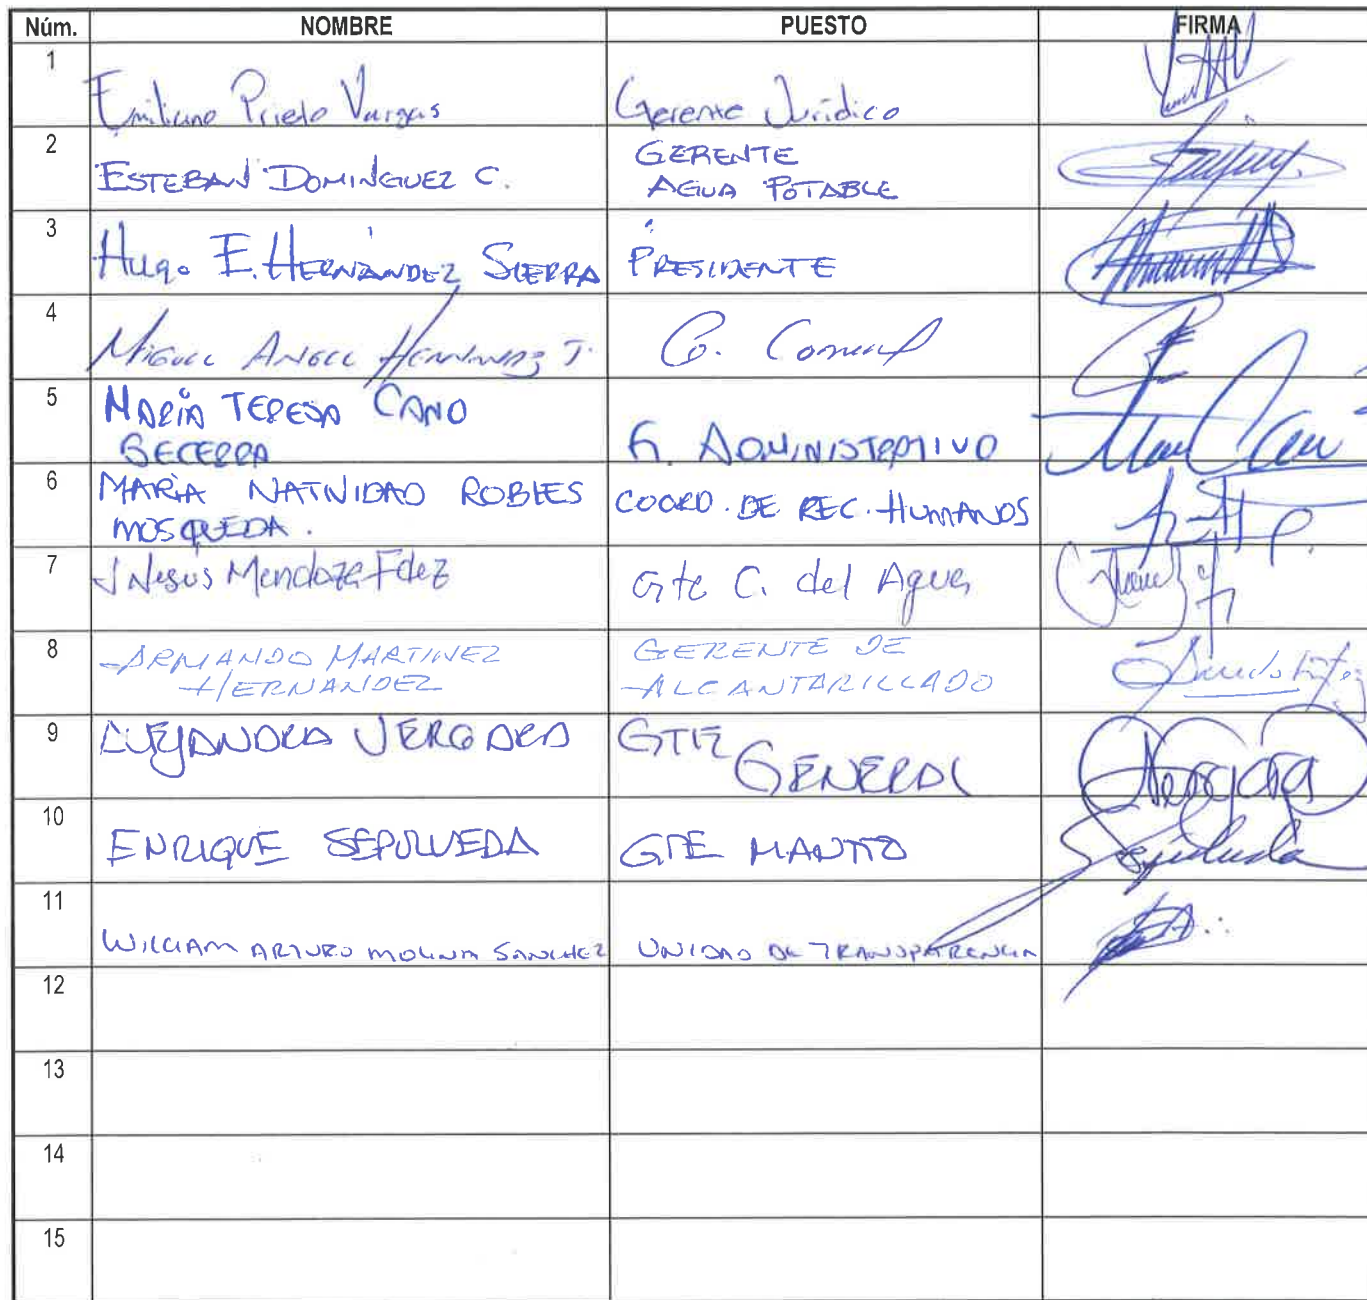 Núm. NOMBRE PUESTO FIRMA
1 Emiliano Prieto Vargas Gerente Jurídico
2 ESTEBAN DOMINGUEZ C. GERENTE
AGUA POTABLE
3 Hugo E. HERNÁNDEZ SIERRA PRESIDENTE
4 MIGUEL ANGEL HERNANDEZ J. G. Comercial
5 MARÍA TERESA CANO
BECERRA G. ADMINISTRATIVO
6 MARÍA NATIVIDAD ROBLES
MOSQUEDA. COORD. DE REC. HUMANOS
7 J Jesús Mendoza Fdez Gte C. del Agua
8 ARMANDO MARTINEZ
HERNANDEZ GERENTE DE
ALCANTARILLADO
9 ALEJANDRA VERGARA GTE
GENERAL Vergara
10 ENRIQUE SEPULVEDA GTE MANTTO Sepulveda
11 WILLIAM ARTURO MOLINA SANCHEZ UNIDAD DE TRANSPARENCIA
12
13
14
15